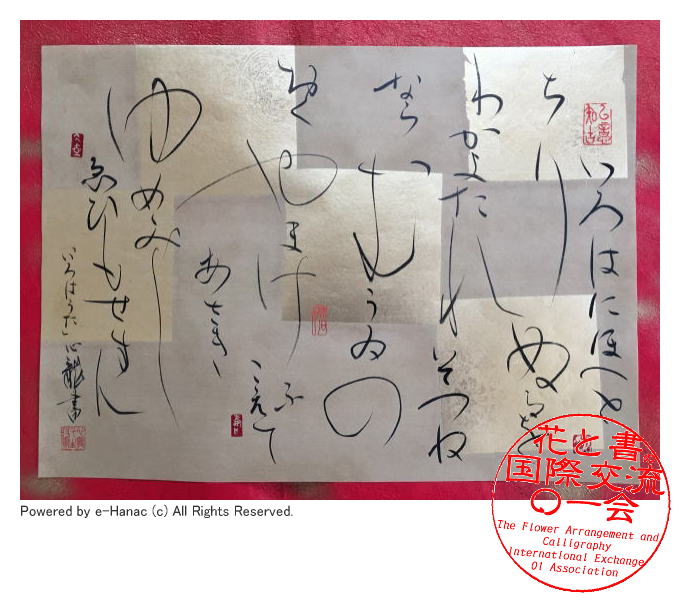 いろはにほへと
ちりぬるを
わかよたれそつね
ならむうゐの
おくやまけふこえて
あさき
ゆめみし
ゑひもせすん
いろはうた 心龍書
Powered by e-Hanac (c) All Rights Reserved.
花と書の
国際交流
〇一会
The Flower Arrangement and
Calligraphy
International Exchange
01 Association